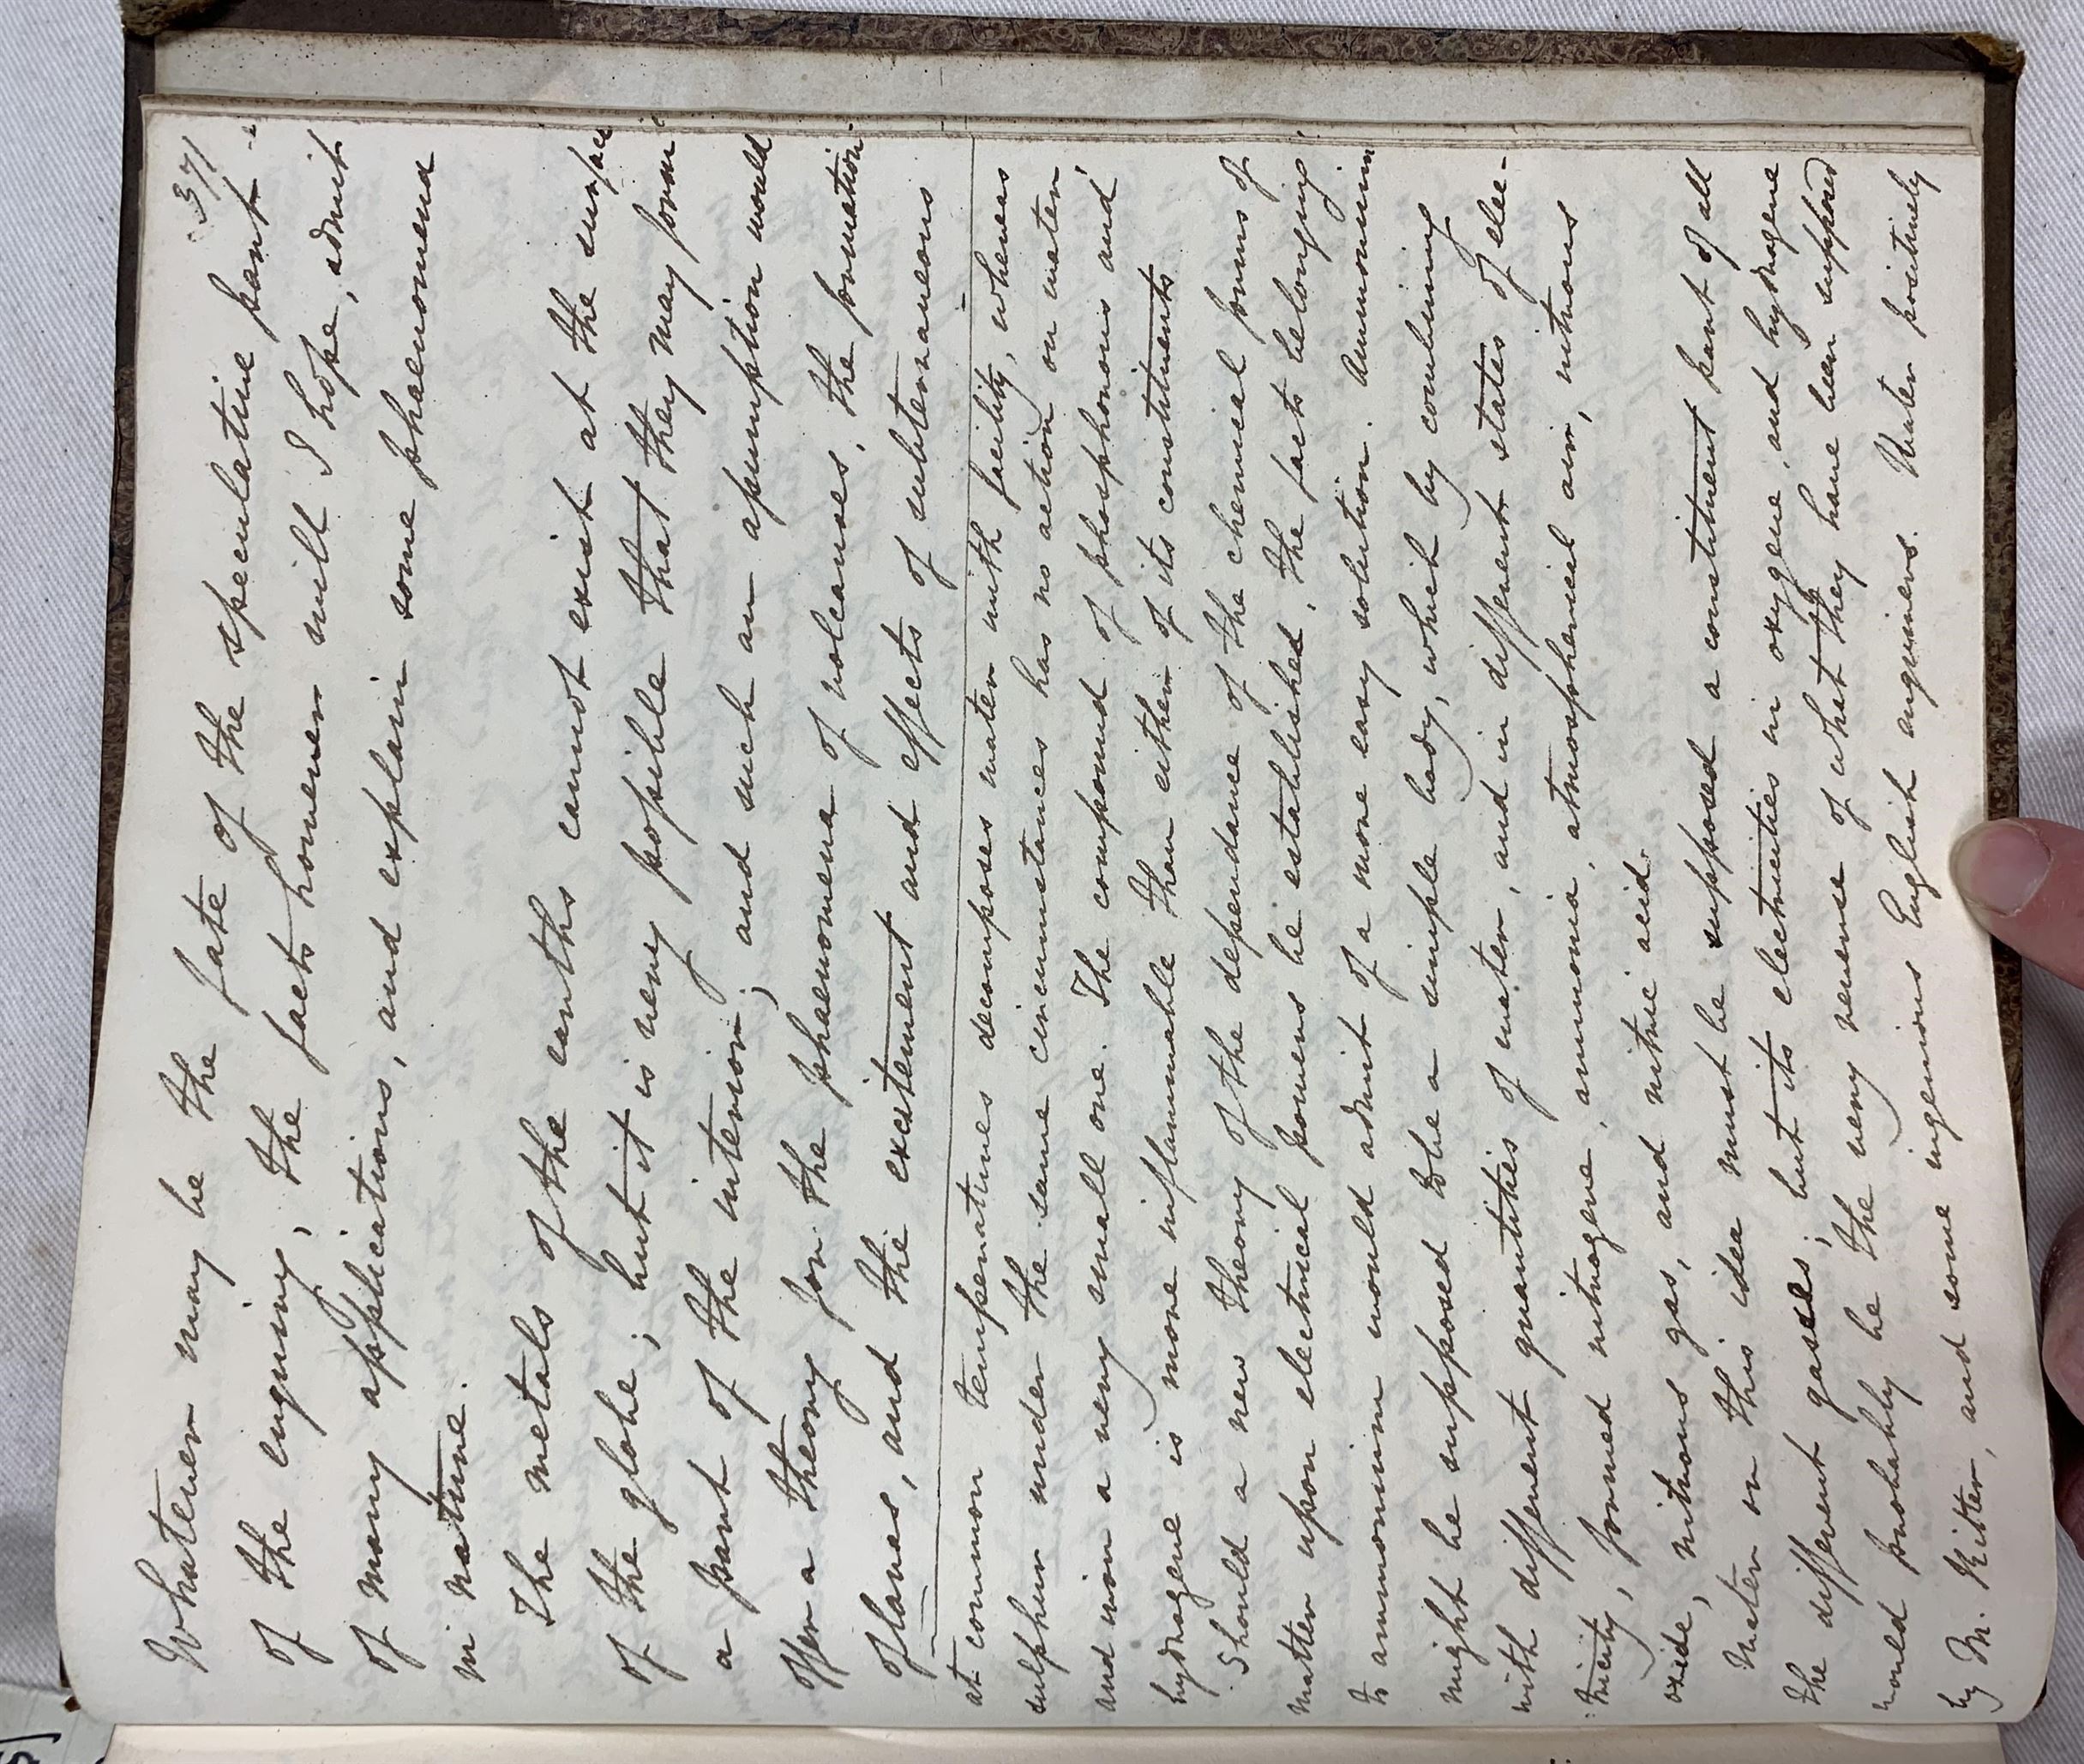 371
Whatever may be the fate of the speculative part
of the enquiry, the facts however will I hope, admit
of many applications, and explain some phaenomena
in nature.
The metals of the earths cannot exist at the surface
of the globe; but it is very possible that they may form
a part of the interior; and such an assumption would
offer a theory for the phaenomena of volcanoes, the formation
of lavas, and the excitement and effects of subterraneous
at common temperatures decomposes water with facility, whereas
sulphur under the same circumstances has no action on water
and iron a very small one. The compound of phosphorus and
hydrogene is more inflammable than either of its constituents
Should a new theory of the dependance of the chemical forms of
matter upon electrical powers be established, the facts belonging
to ammonium would admit of a more easy solution. Ammonium
might be supposed to be a simple body, which by combining
with different quantities of water, and in different states of elec-
tricity, formed nitrogene, ammonia, atmospherical air, nitrous
oxide, nitrous gas, and nitric acid.
Water on this idea must be supposed a constituent part of all
the different gases; but its electricities in oxygene, and hydrogene
would probably be the very reverse of what they have been supposed
by M. Ritter, and some ingenious English enquirers. Water positively